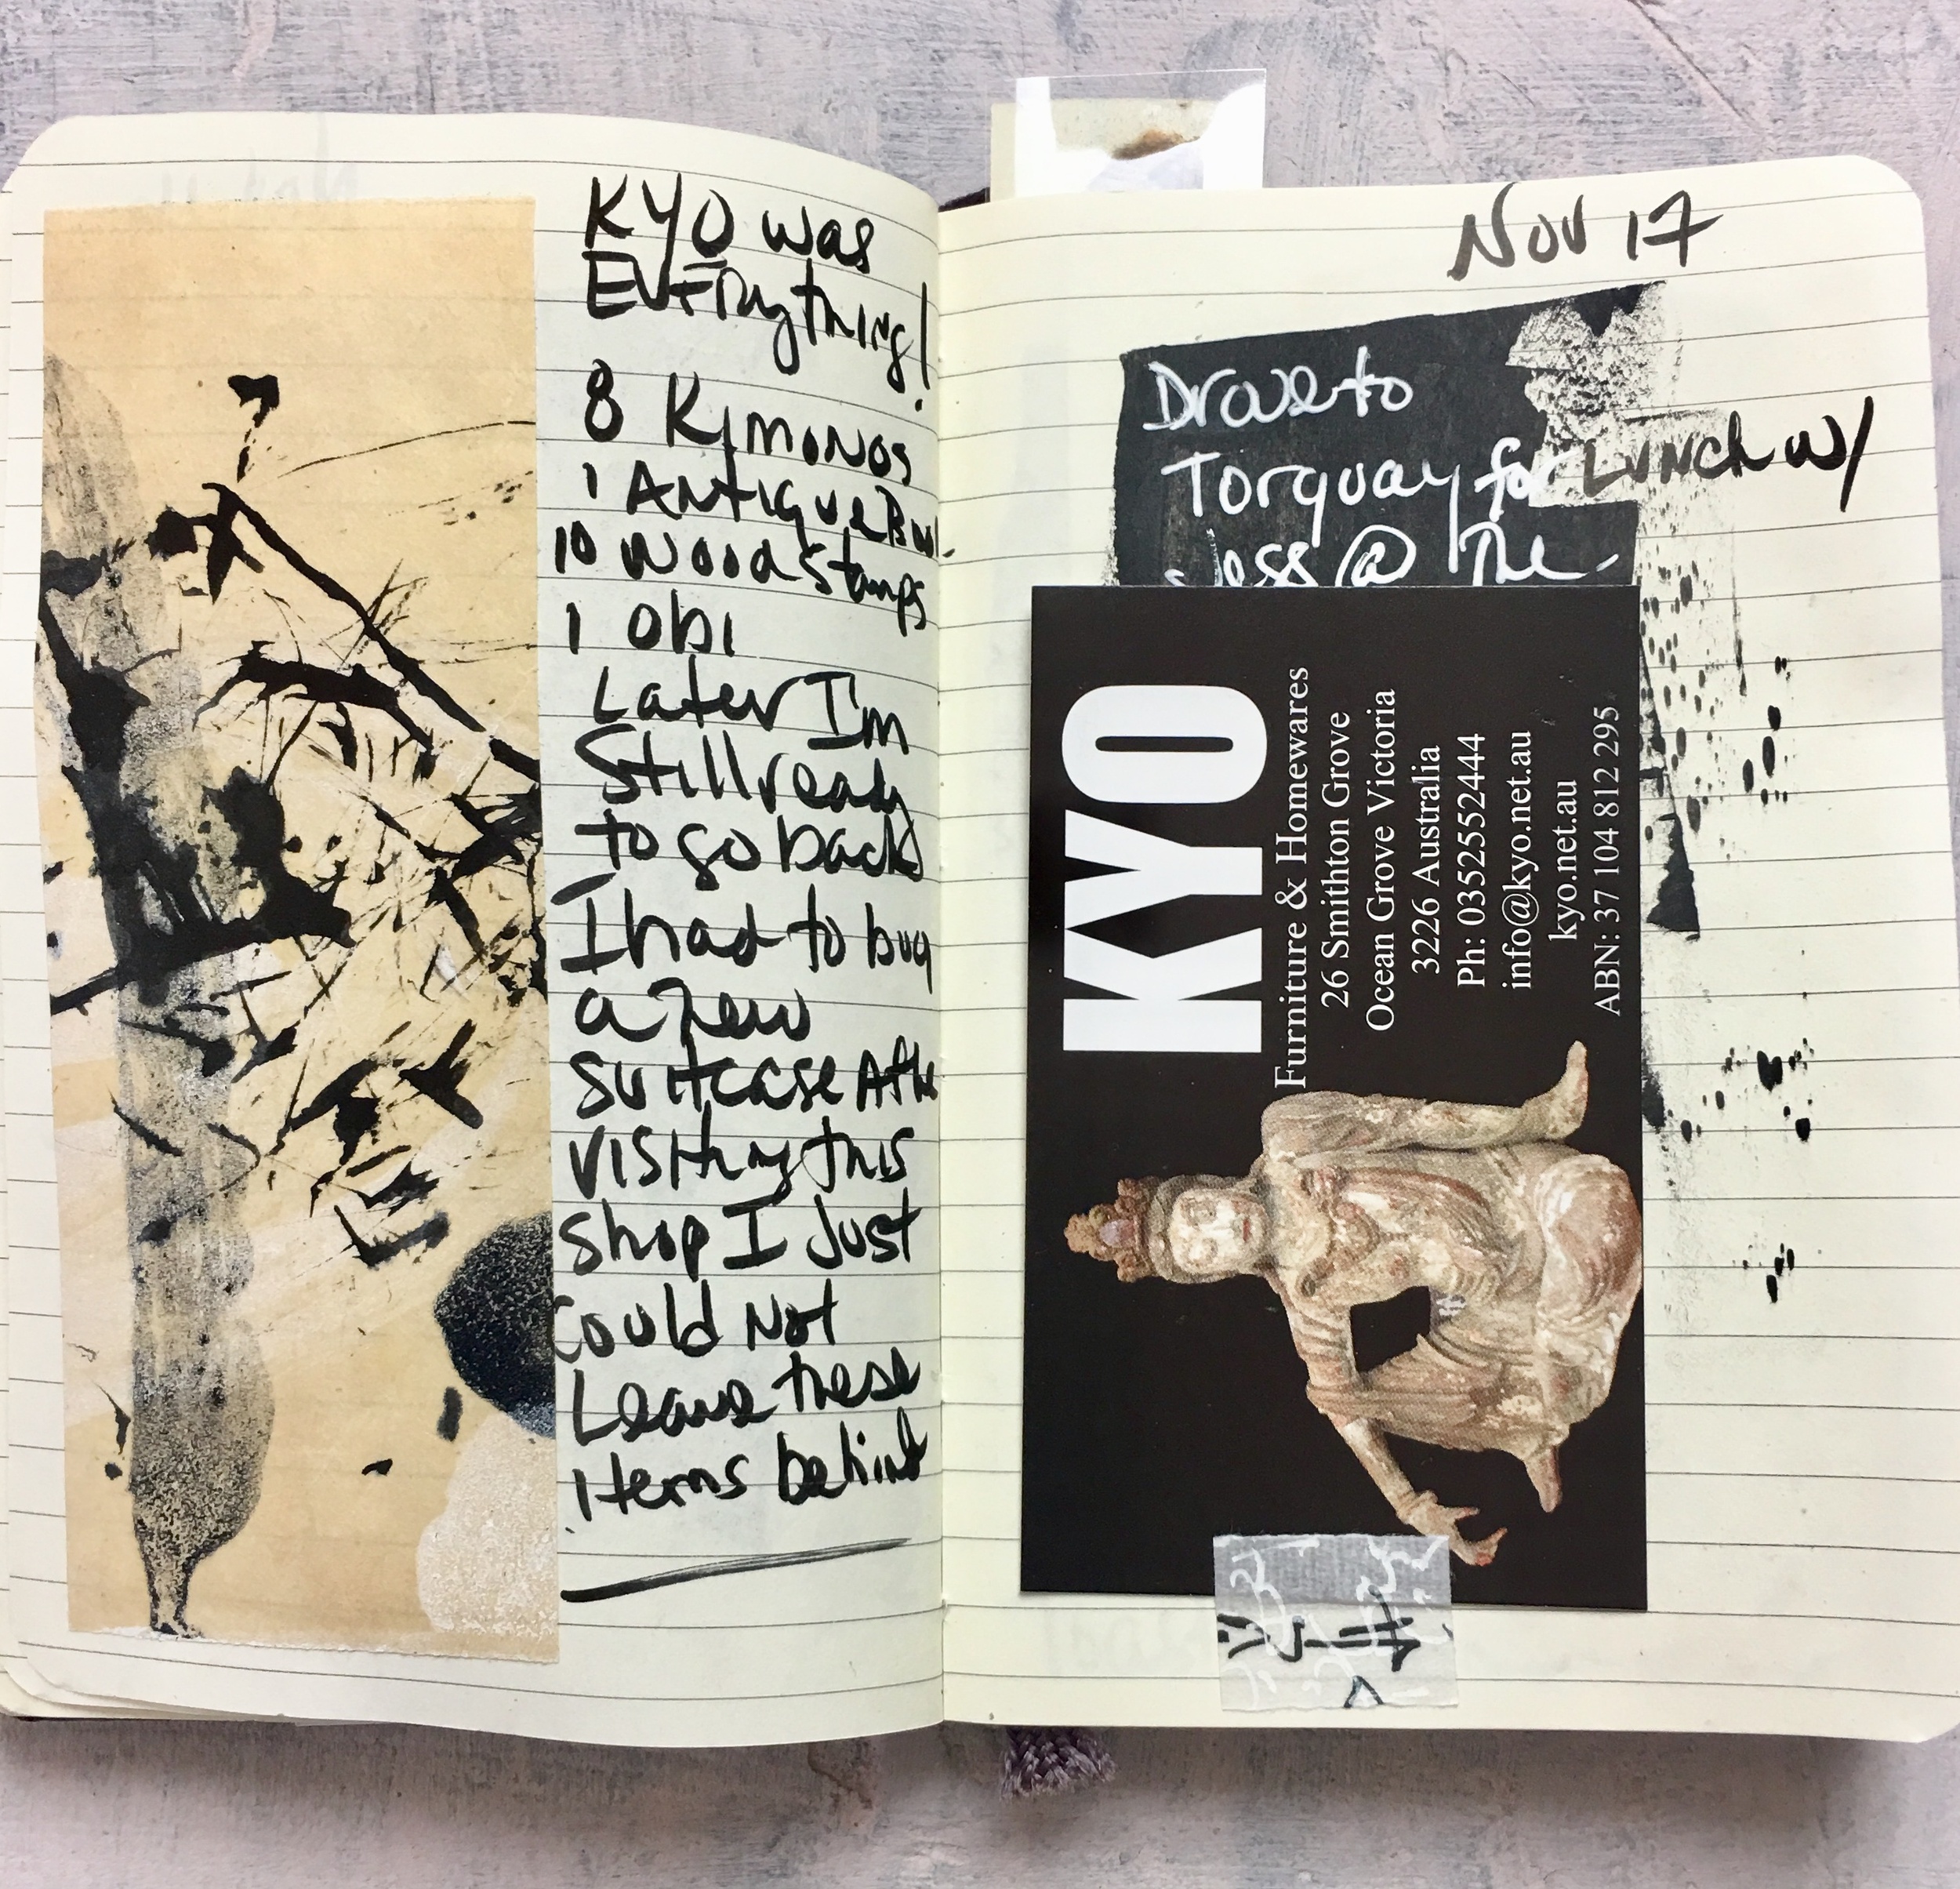 KYO was
EVERything!
8 Kimonos
1 Antique
10 wood stamps
1 obi
Later I'm
Still ready
to go back
I had to buy
a new
suitcase After
visiting this
shop I just
could Not
Leave these
items behind
Nov 17
Drove to
Torquay for LUNCH w/
Jess @ The
KYO
Furniture & Homewares
26 Smithton Grove
Ocean Grove Victoria
3226 Australia
Ph: 0352552444
info@kyo.net.au
kyo.net.au
ABN: 37 104 812 295